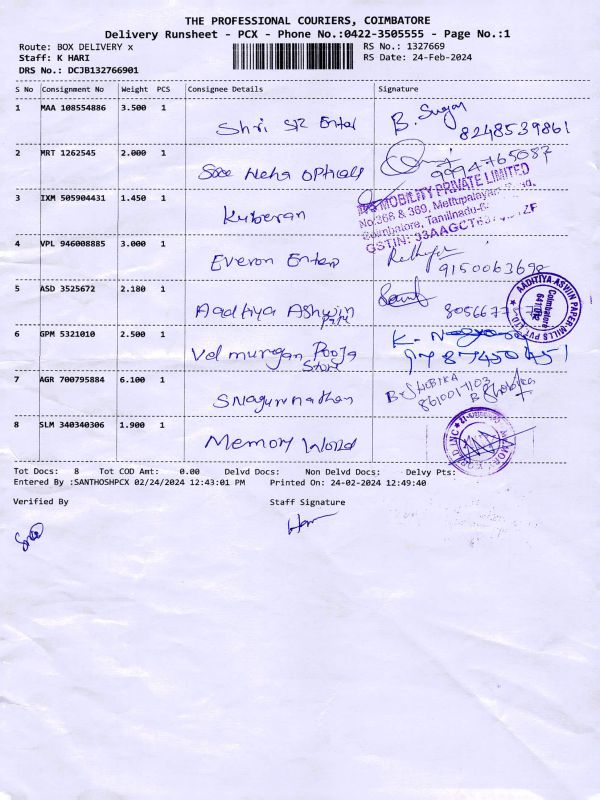 THE PROFESSIONAL COURIERS, COIMBATORE
Delivery Runsheet - PCX - Phone No.:0422-3505555 - Page No.:1
Route: BOX DELIVERY x RS No.: 1327669
Staff: K HARI RS Date: 24-Feb-2024
DRS No.: DCJB132766901
S No Consignment No Weight PCS Consignee Details Signature
1 MAA 108554886 3.500 1
Shri SR Enter B. Sugar
8248539861
2 MRT 1262545 2.000 1
Sree Neha opticals 9994765087
3 IXM 505904431 1.450 1
Kuberan
MOBILITY PRIVATE LIMITED
No.368 & 369, Mettupalayam Road,
Coimbatore, Tamilnadu-6
GSTIN: 33AAGCT
4 VPL 946008885 3.000 1
Everon Enterp
9150063692
5 ASD 3525672 2.180 1
Aaditya Ashwin
AADITIYA-ASHIN PAPER MILLS PVT LTD
Coimbatore
6 GPM 5321010 2.500 1
Vel murugan Pooja
Store
7 AGR 700795884 6.100 1
B. SHOBIKA
8610017103
8 SLM 340340306 1.900 1
Memory World
Tot Docs: 8 Tot COD Amt: 0.00 Delvd Docs: Non Delvd Docs: Delvy Pts:
Entered By :SANTHOSHPCX 02/24/2024 12:43:01 PM Printed On: 24-02-2024 12:49:40
Verified By Staff Signature